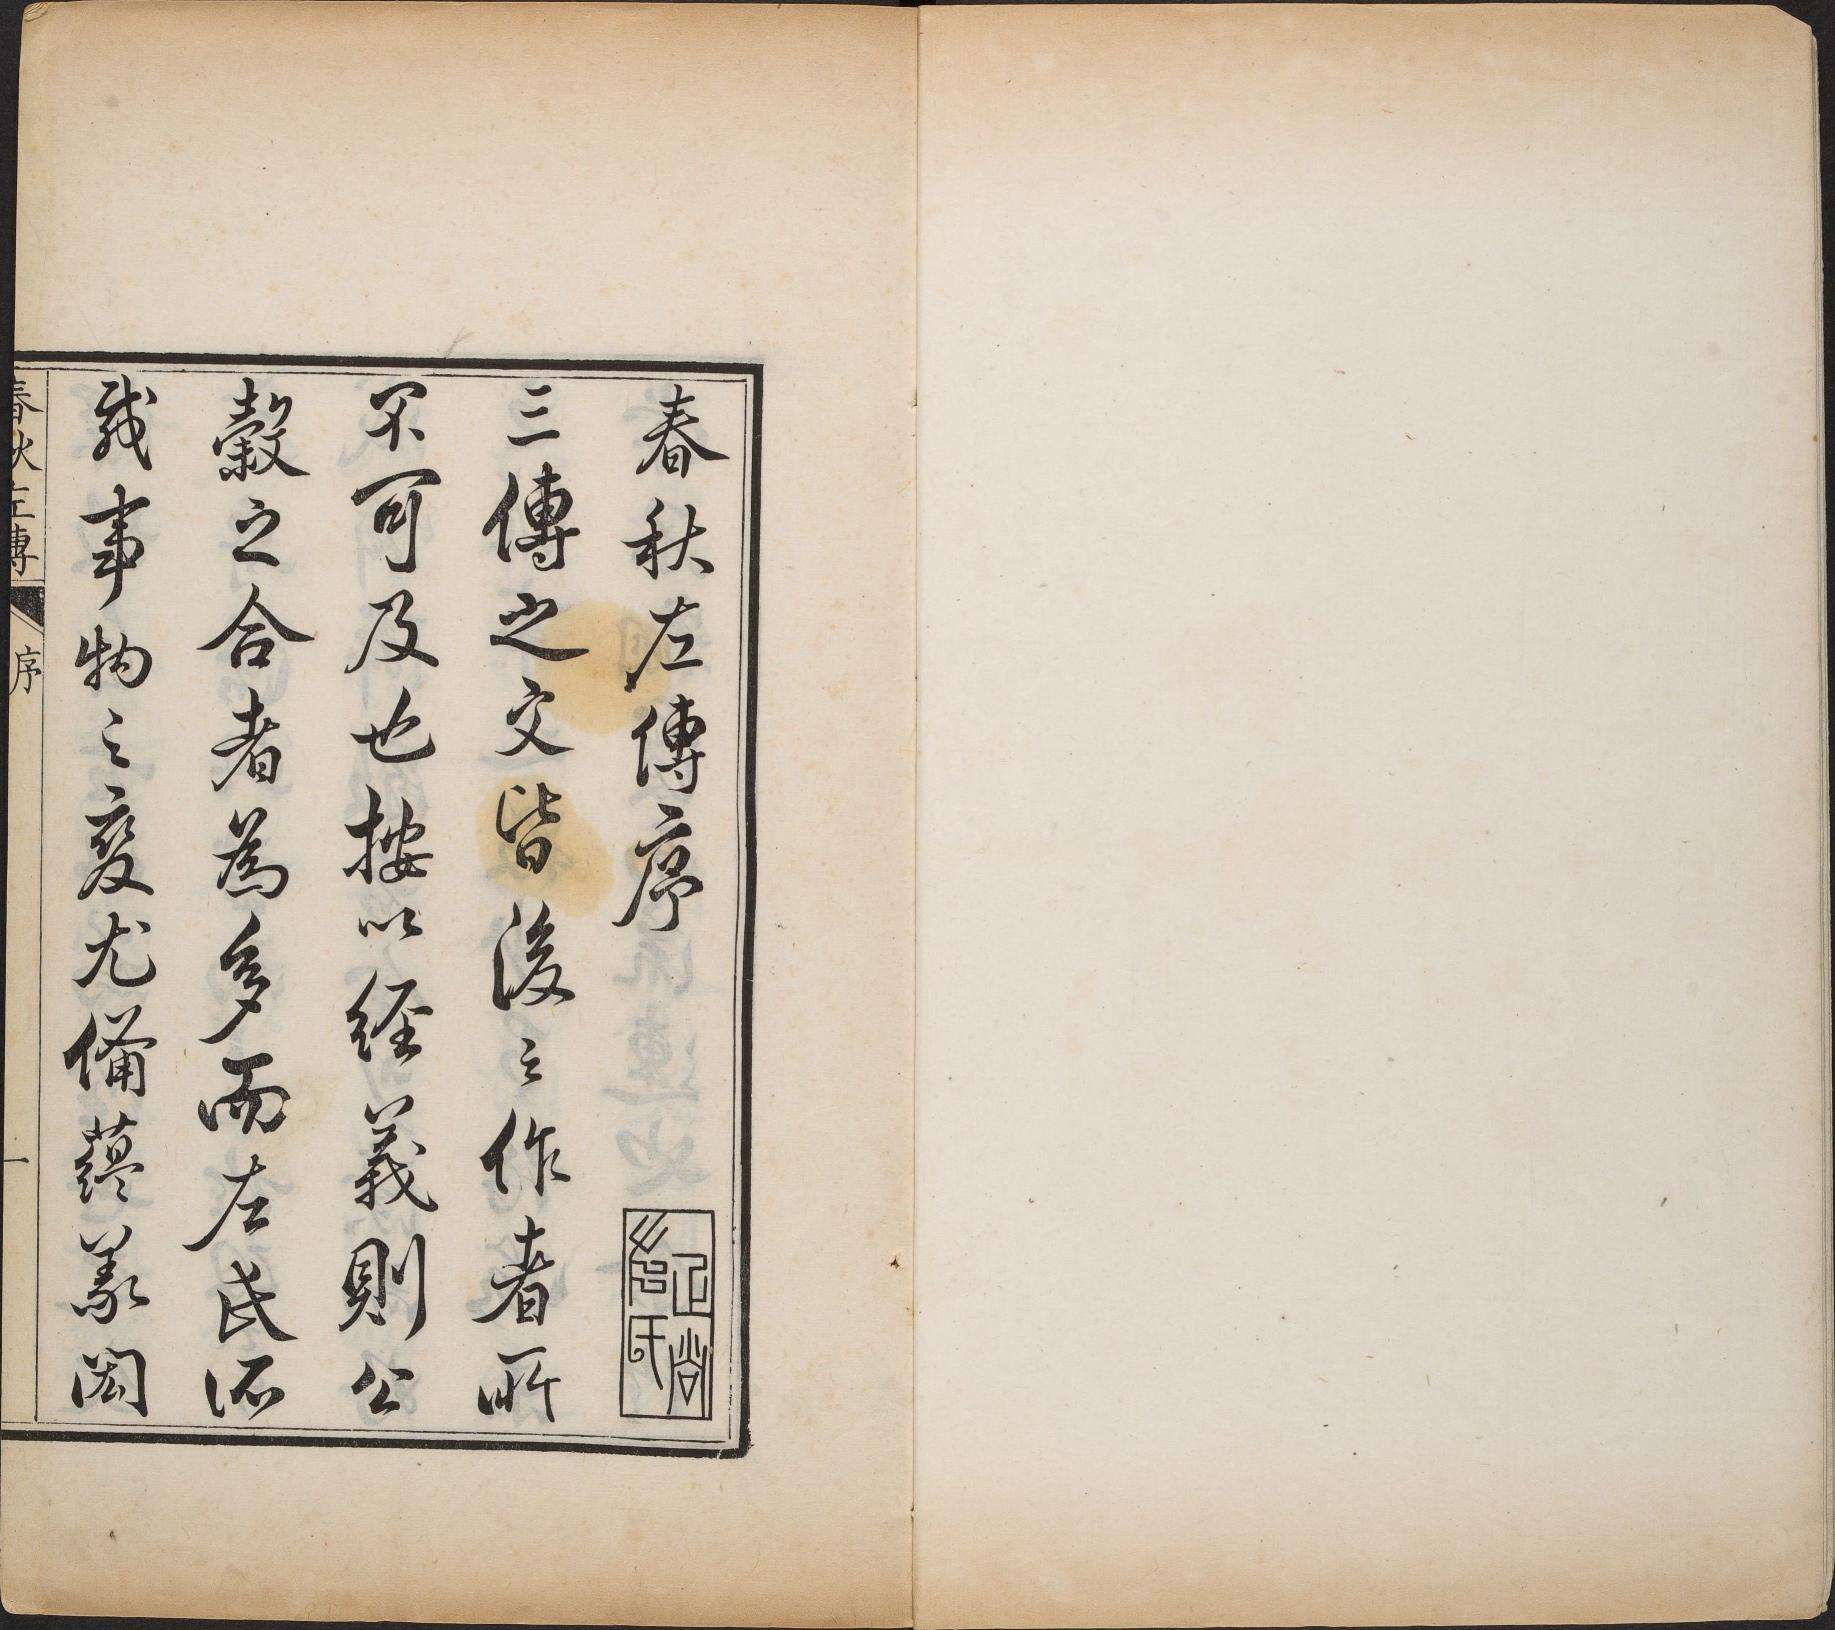 春秋左傳序
三傳之文皆後之作者所
不可及也按以經義則公
穀之合者為多而左氏所
載事物之變尤備蘊義閎
春秋左傳 序 一